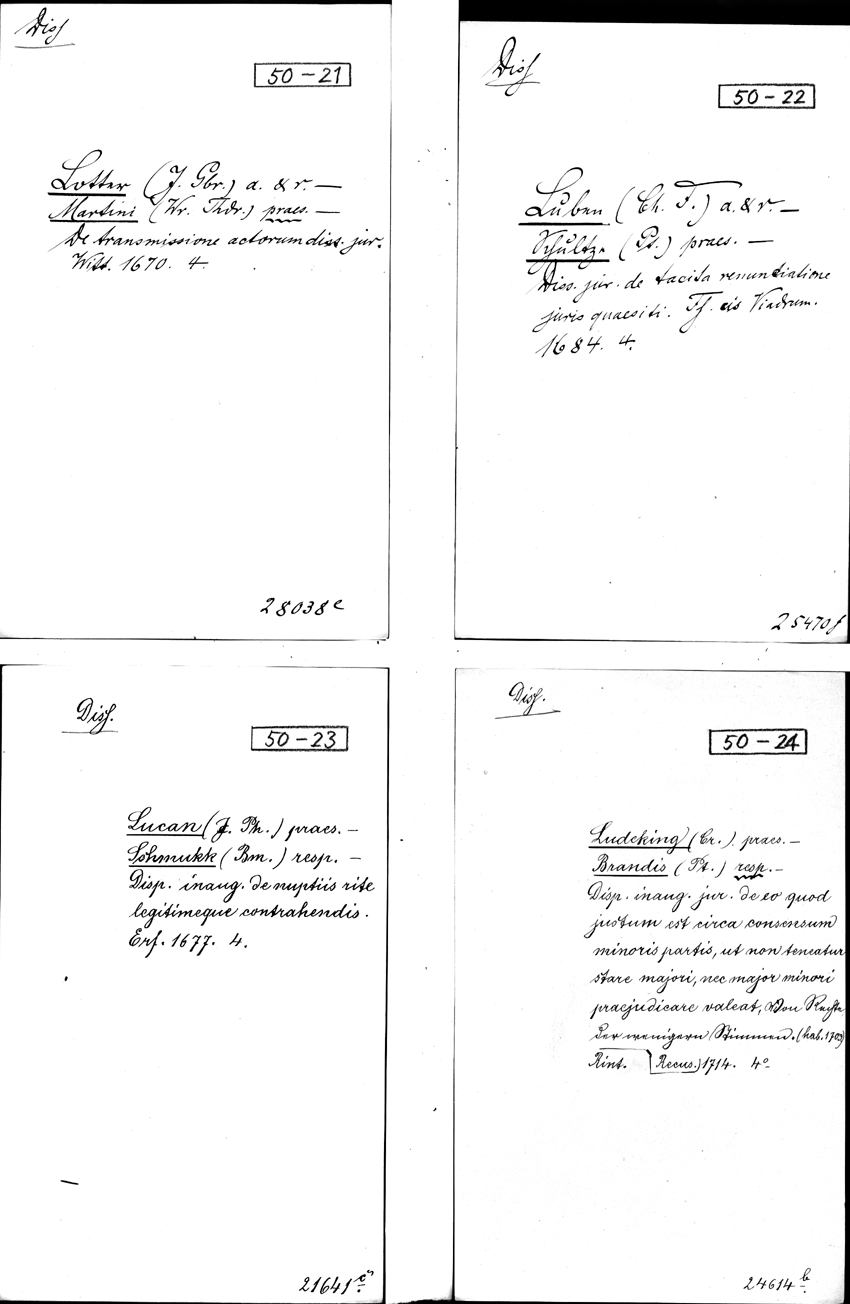 Diss
50-21
Lotter (J. Gbr.) a. & r. —
Martini (Wr. Thdr.) praes. —
De transmissione actorum diss. jur.
Witt. 1670. 4.
28038 e
Diss
50-22
Luben (Ch. F.) a. & r. —
Schultze (Pt.) praes. —
Diss. jur. de tacita renunciatione
juris quaesiti. Ff. cis Viadrum.
1684. 4.
25470 f
Diss.
50-23
Lucan (J. Ph.) praes. —
Schmukk (Bm.) resp. —
Disp. inaug. de nuptiis rite
legitimeque contrahendis.
Erf. 1677. 4.
21641
Diss.
50-24
Ludeking (Cr.) praes. —
Brandis (Pt.) resp. —
Disp. inaug. jur. de eo quod
justum est circa consensum
minoris partis, ut non teneatur
stare majori, nec major minori
praejudicare valeat, Von Rechte
der wenigern Stimmen. (hab. 1703)
Rint. (Recus.) 1714. 4º
24614 b.